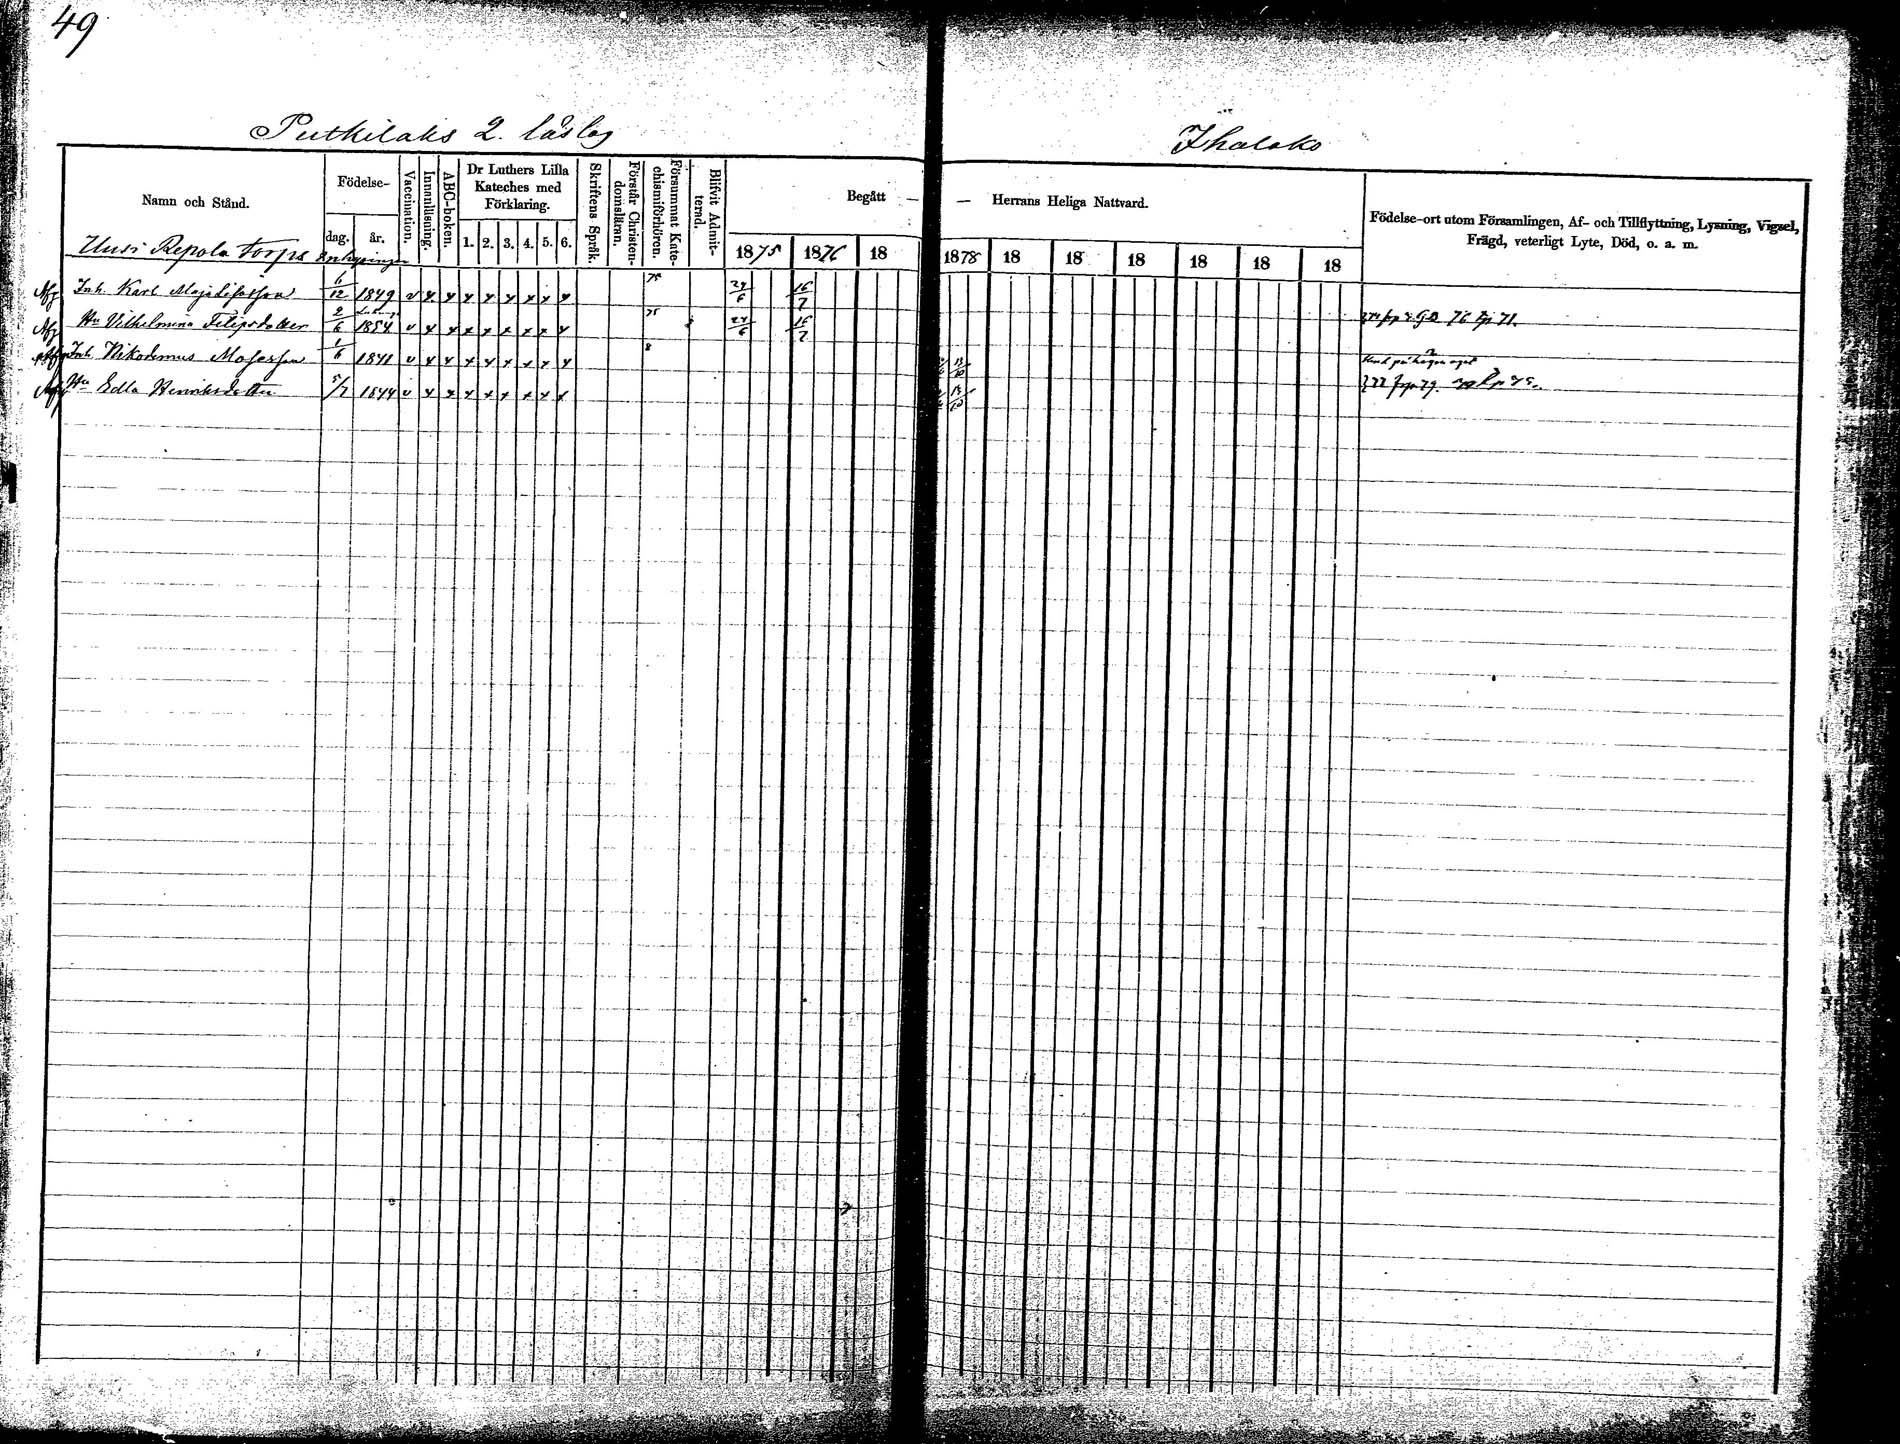 49
Putkilaks 2. läslag
Ihalaks
Namn och Stånd.
Födelse-
dag.
år.
Vaccination.
Innanläsning.
ABC-boken.
Dr Luthers Lilla Kateches med Förklaring.
1. 2. 3. 4. 5. 6.
Skriftens Språk.
Förstår Christendomsläran.
Försummat Katechismiförhören.
Blifvit Admitterad.
Begått — — Herrans Heliga Nattvard.
1875 1876 18 1878 18 18 18 18 18 18
Födelse-ort utom Församlingen, Af- och Tillflyttning, Lysning, Vigsel, Frägd, veterligt Lyte, Död, o. a. m.
Uusi Repola torps
Inh. Karl 6/12 1849 v x x x x x x x x 75 24/6 16/7
Hu Vilhelmina Filipsdotter 2/6 1854 v x x x x x x x x 75 24/6 16/7
Inh. Nikodemus Mosesson 1/6 1841 v x x x x x x x x 8 13/10
Hu Edla Henriksdotter 5/7 1844 v x x x x x x x x 13/10